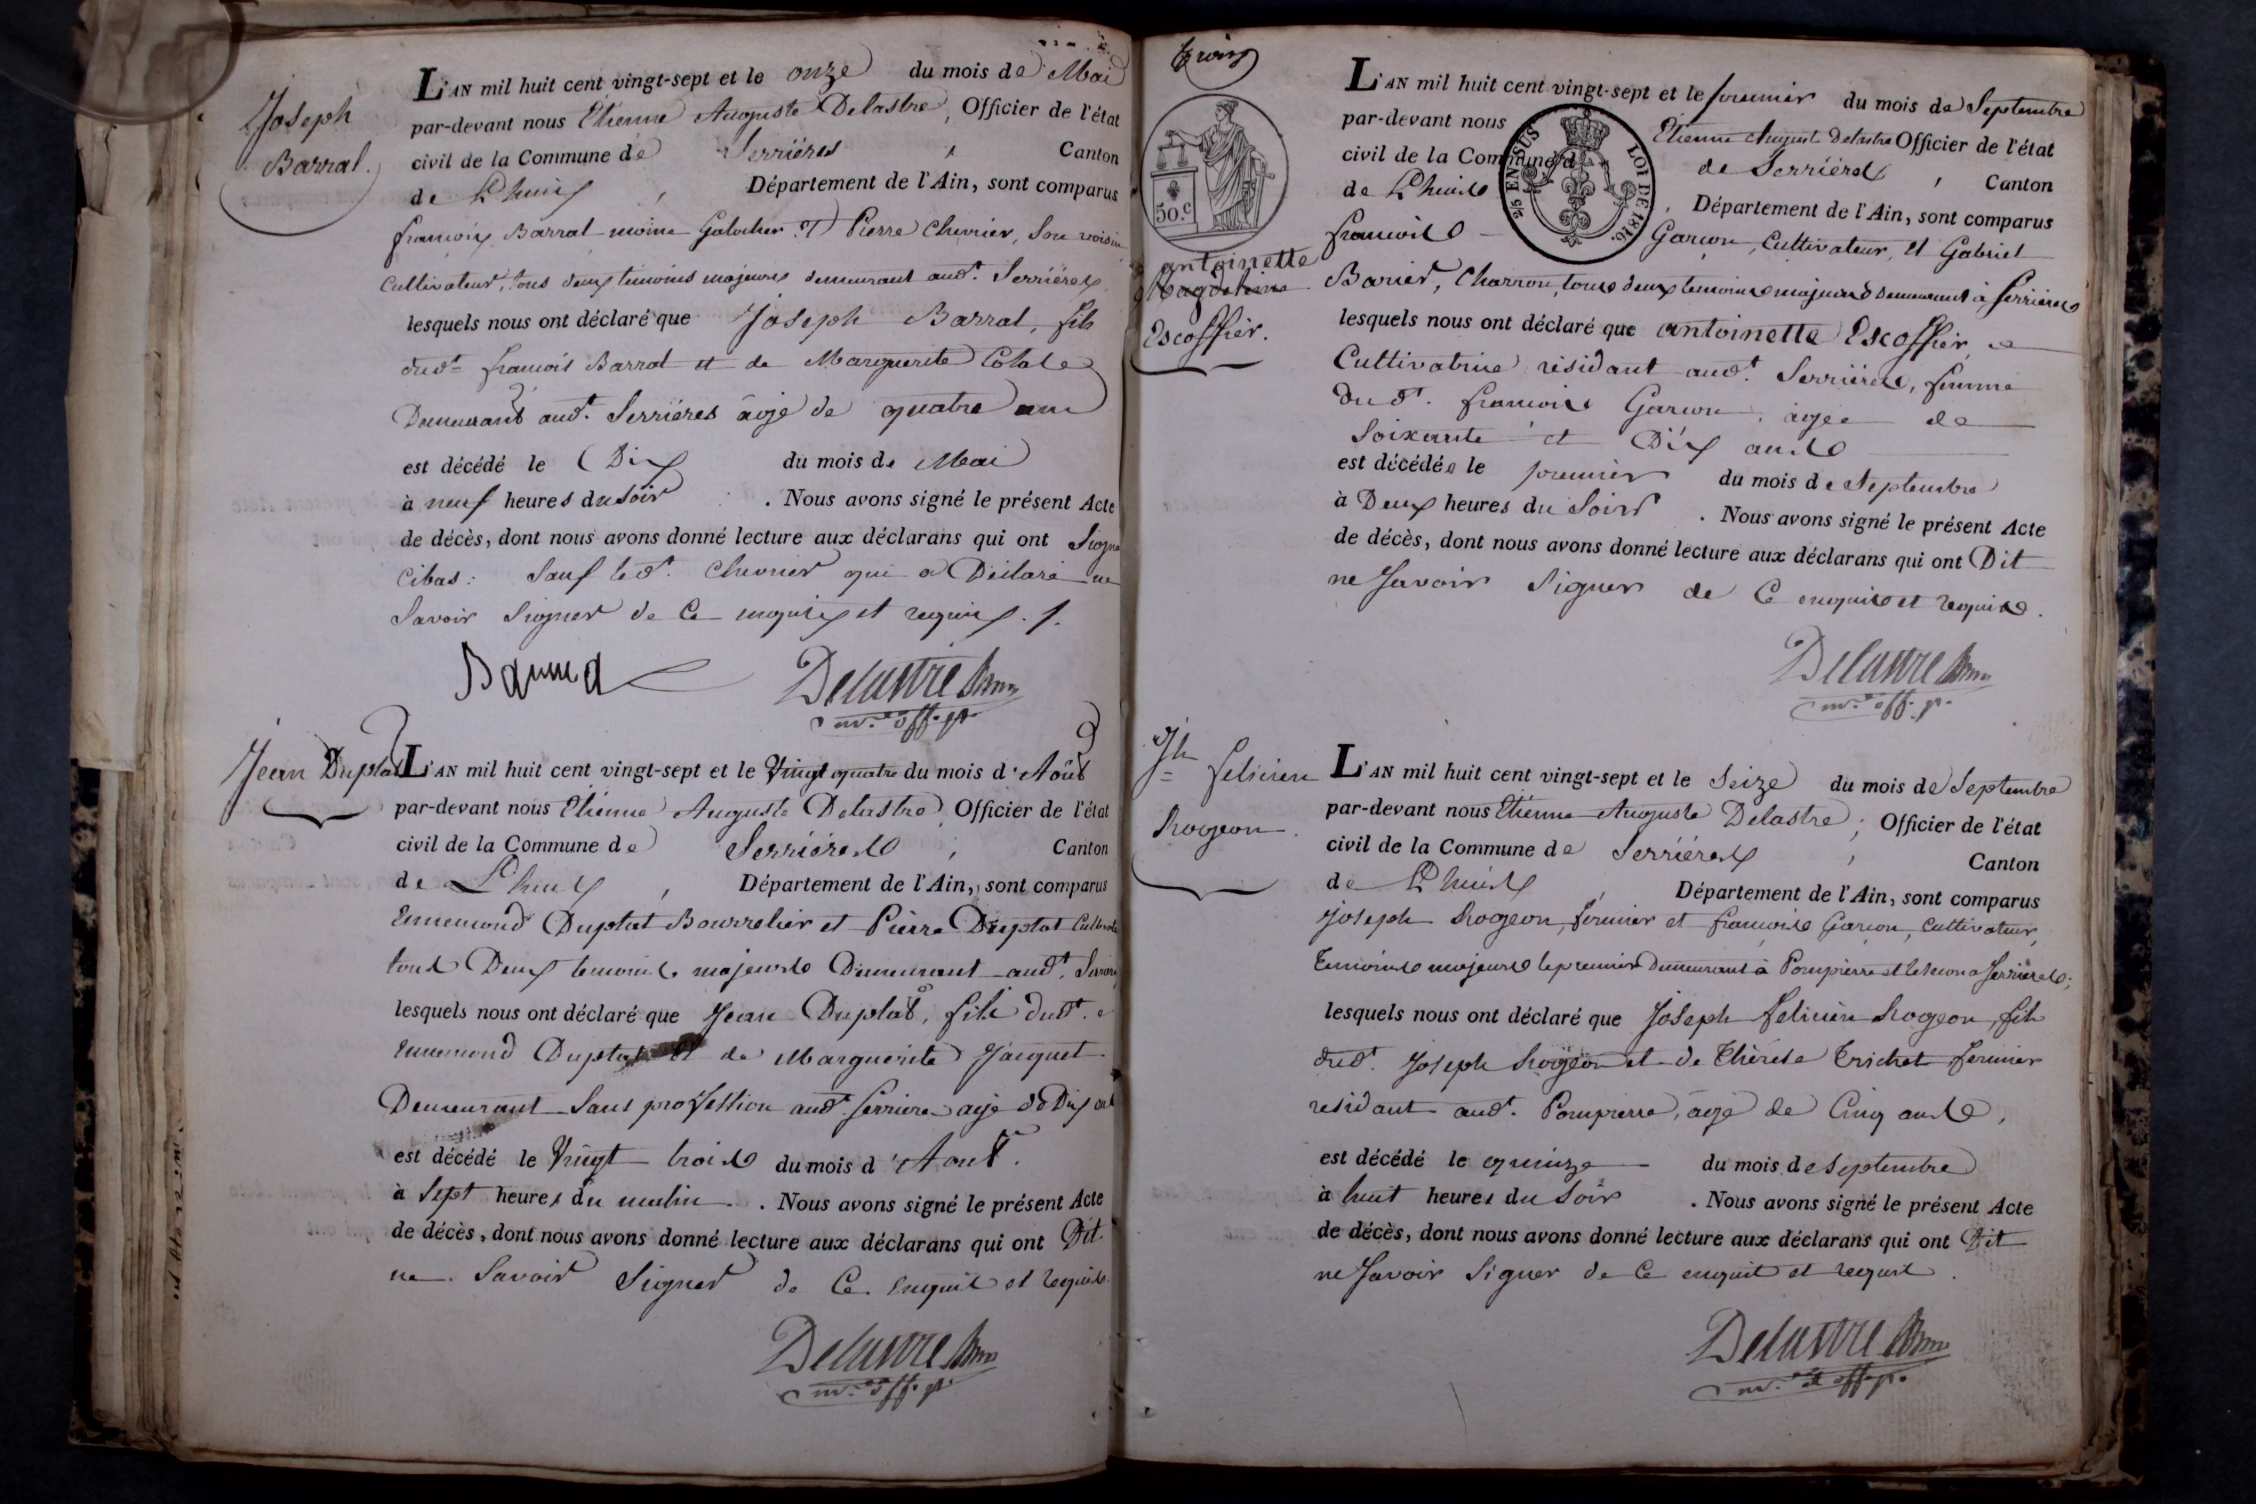 Joseph
Barral.
L'AN mil huit cent vingt-sept et le onze du mois de Mai
par-devant nous Etienne Auguste Delastre, Officier de l'état
civil de la Commune de Serriéres, Canton
de Lhuis, Département de l'Ain, sont comparus
françois Barral moine Galocher et Pierre Chevrier, Son voisin
Cultivateur, tous deux temoins majeurs demeurant audt. Serriéres,
lesquels nous ont déclaré que Joseph Barral, fils
dudt françois Barral et de Marguerite
Demeurant audt. Serriéres âgé de quatre ans
est décédé le Dix du mois de Mai
à neuf heures du Soir. Nous avons signé le présent Acte
de décès, dont nous avons donné lecture aux déclarans qui ont Signé
Cibas: Sauf ledt. Chevrier qui a Déclaré ne
Savoir Signer de Ce enquis et requis.
Delastre
Jean Duplat
L'AN mil huit cent vingt-sept et le Vingt quatre du mois d'Août
par-devant nous Etienne Auguste Delastre, Officier de l'état
civil de la Commune de Serriéres, Canton
de Lhuis, Département de l'Ain, sont comparus
Ennemond Duplat Bourrelier et Pierre Duplat
tous Deux temoins majeurs Demeurant audt.
lesquels nous ont déclaré que Jean Duplat, fils dudt.
Ennemond Duplat et de Marguerite Jacquet
Demeurant Sans profession audt. Serriere agé de Dix ans
est décédé le Vingt trois du mois d'Aout.
à Sept heures du matin. Nous avons signé le présent Acte
de décès, dont nous avons donné lecture aux déclarans qui ont Dit
ne Savoir Signer de Ce enquis et requis.
Delastre
trois
50.c
antoinette
Magdelaine
Escoffier.
2/5 EN SUS LOI DE 1816.
L'AN mil huit cent vingt-sept et le premier du mois de Septembre
par-devant nous Etienne August Delastre Officier de l'état
civil de la Commune de Serriéres, Canton
de Lhuis, Département de l'Ain, sont comparus
françois Garçon, Cultivateur, et Gabriel
Barier, Charron, tous deux temoins majeurs demeurant à Serriéres
lesquels nous ont déclaré que antoinette Escoffier,
Cultivatrice résidant audt. Serriéres, femme
dudt. françois Garçon, âgée de
Soixante et Dix ans
est décédée le premier du mois de Septembre
à Deux heures du Soir. Nous avons signé le présent Acte
de décès, dont nous avons donné lecture aux déclarans qui ont Dit
ne Savoir Signer de Ce enquis et requis.
Delastre
Jh felicien
Rogeon.
L'AN mil huit cent vingt-sept et le Seize du mois de Septembre
par-devant nous Etienne Auguste Delastre, Officier de l'état
civil de la Commune de Serriéres, Canton
de Lhuis, Département de l'Ain, sont comparus
Joseph Rogeon, fermier et françois Garçon, Cultivateur,
Temoins majeurs le premier Demeurant à Pompierre et le second a Serriéres;
lesquels nous ont déclaré que Joseph Felicien Rogeon, fils
dudt. Joseph Rogeon et de Thérèse Trichet fermier
residant audt. Pompierre, âgé de Cinq ans,
est décédé le quinze du mois de Septembre
à huit heures du Soir. Nous avons signé le présent Acte
de décès, dont nous avons donné lecture aux déclarans qui ont Dit
ne Savoir Signer de Ce enquis et requis.
Delastre